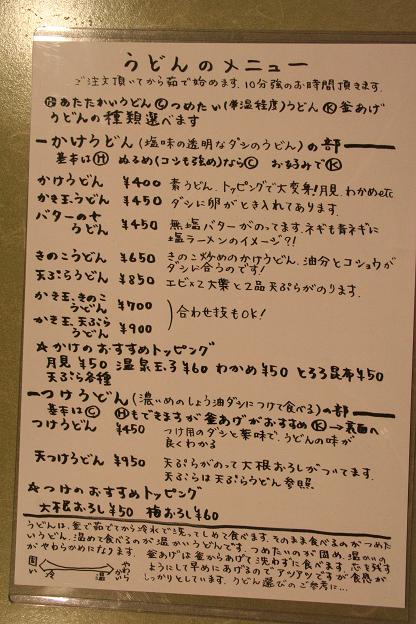 うどんのメニュー
ご注文頂いてから茹で始めます。10分強のお時間頂きます。
Ⓗあたたかいうどん Ⓒつめたい(常温程度)うどん Ⓚ釜あげ
うどんの種類選べます
ーかけうどん(塩味の透明なダシのうどん)の部ー
基本はⒽ ぬるめ(コシも強め)ならⒸ お好みでⓀ
かけうどん ¥400 素うどん。トッピングで大変身!月見、わかめetc
かき玉うどん ¥450 ダシに卵がとき入れてあります。
バターの十
うどん ¥450 無塩バターがのってます。ネギも青ネギに
塩ラーメンのイメージ?!
きのこうどん ¥650 きのこ炒めのかけうどん。油分とコショウが
ダシに合うのです!
天ぷらうどん ¥850 エビ×2 大葉と2品天ぷらがのります。
かき玉、きのこ
うどん ¥700
かき玉、天ぷら
うどん ¥900
合わせ技もOK!
☆かけのおすすめトッピング
月見 ¥50 温泉玉子¥60 わかめ¥50 とろろ昆布¥50
天ぷら各種
ーつけうどん(濃いめのしょう油ダシにつけて食べる)の部ー
基本はⒸ Ⓗもできますが釜あげがおすすめⓀ→裏面へ
つけうどん ¥450 つけ用のダシと薬味で。うどんの味が
良くわかる
天つけうどん ¥950 天ぷらがのって大根おろしがついてます。
天ぷらは天ぷらうどん参照。
☆つけのおすすめトッピング
大根おろし¥50 梅おろし¥60
うどんは、釜で茹でてから冷水で洗ってしめて食べます。そのまま食べるのがつめた
いうどん。温めて食べるのが温かいうどんです。つめたいのが固め、温かいの
がやわらかめになります。 釜あげは釜からあげて洗わずに食べます。芯を残す
ようにして早めにあげるのでアツアツですが食感が
しっかりとしています。うどん選びのご参考に…
固い 冷 温 やわらかい